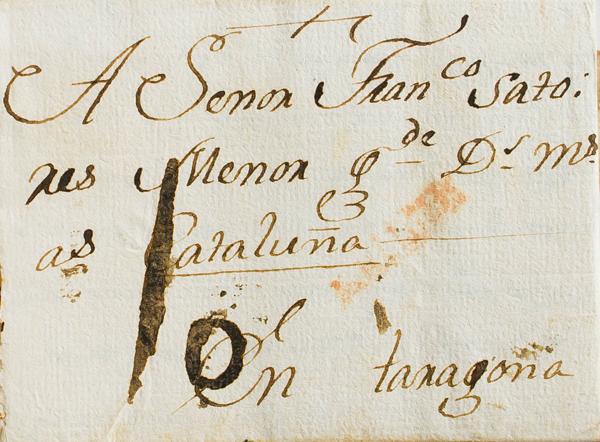 A Señor Fran^co Sato:
res Menor g^de D^s m^s
a^s
Cataluña
10
En taragona